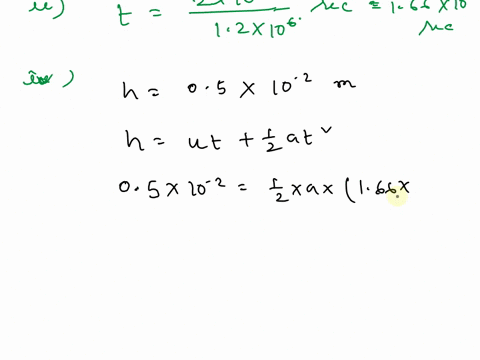 t = 2×10 / 1.2×10⁶ sec = 1.66×10
sec
h = 0.5 × 10⁻² m
h = ut + ½ at²
0.5 × 10⁻² = ½ × a × (1.66×